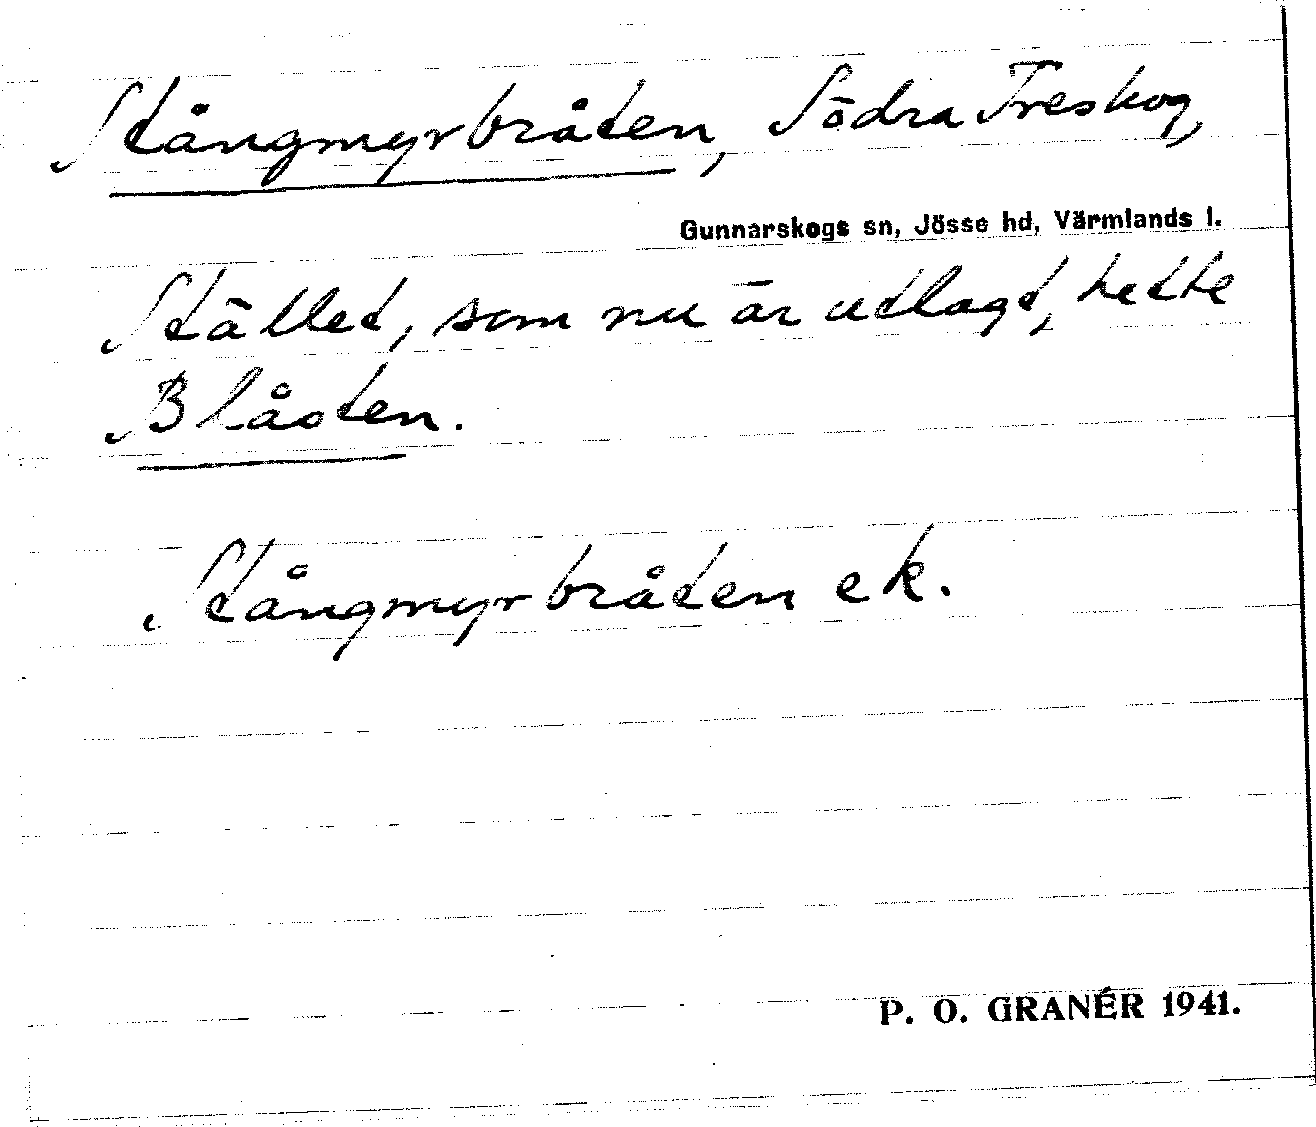 Stångmyrbråten, Södra Treskog,
Gunnarskogs sn, Jösse hd, Värmlands l.
Stället, som nu är utlagt, hette
Blåsten.
Stångmyrbråten ek.
P. O. GRANÉR 1941.